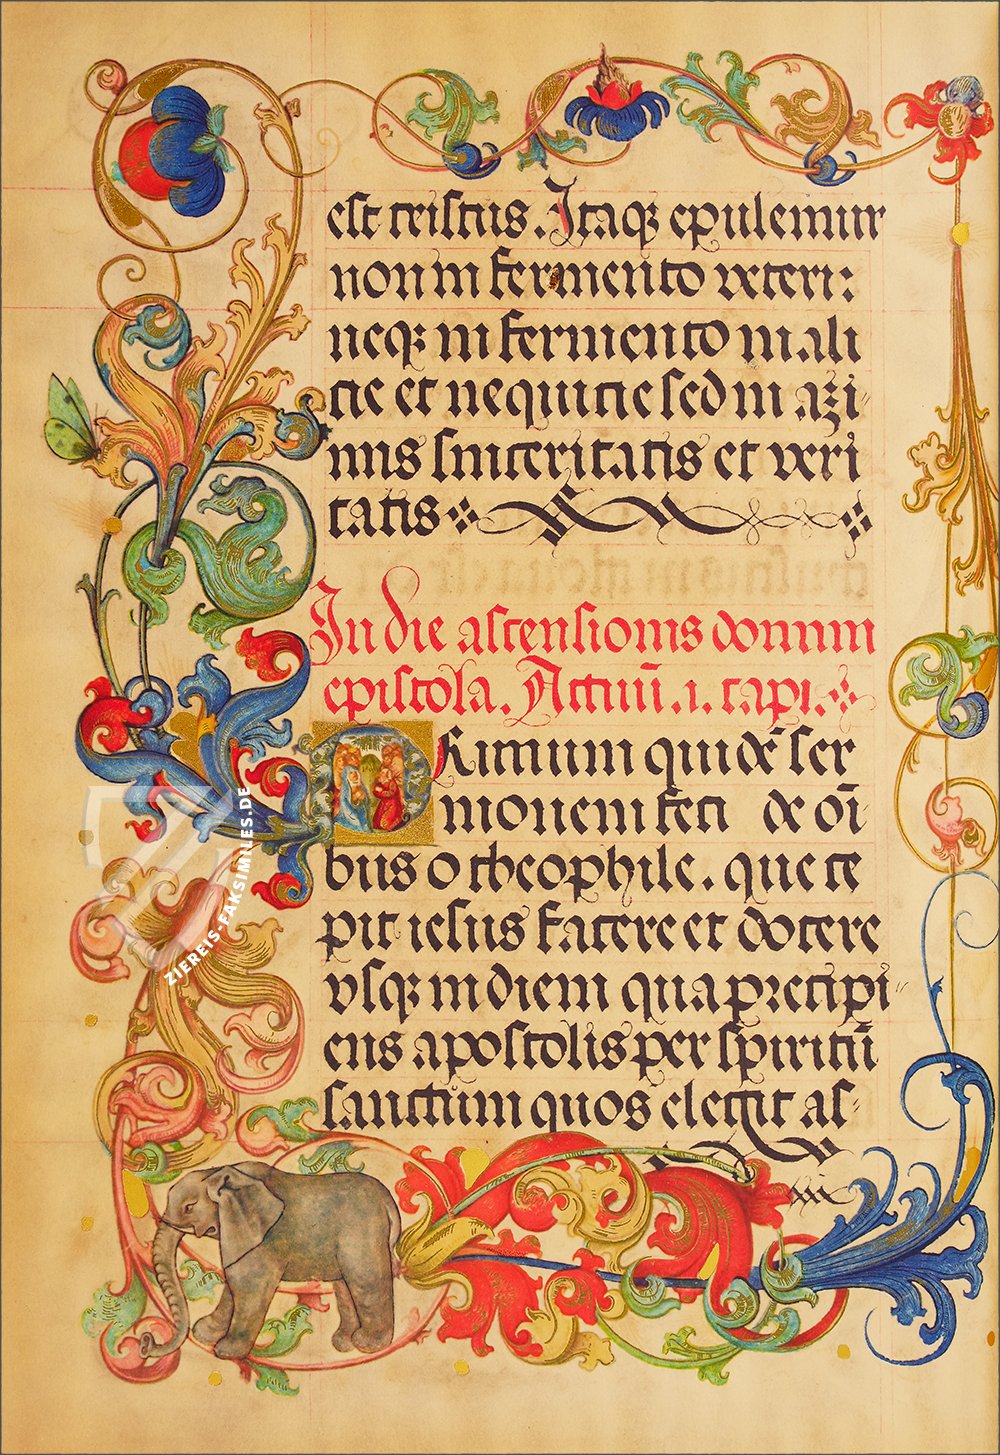 est tristus. Itaqꝫ epulemur
non in fermento veteri:
neqꝫ in fermento mali
cie et nequicie sed in azi
mis sinceritatis et veri
tatis
In die ascensionis domini
epistola. Actuū .i. capi.
PRimum quidē ser
monem feci de oī
bus o theophile. que ce
pit iesus facere et docere
vsqꝫ in diem qua precipi
ens apostolis per spiritū
sanctum quos elegit as
ZIEREIS-FAKSIMILES.DE